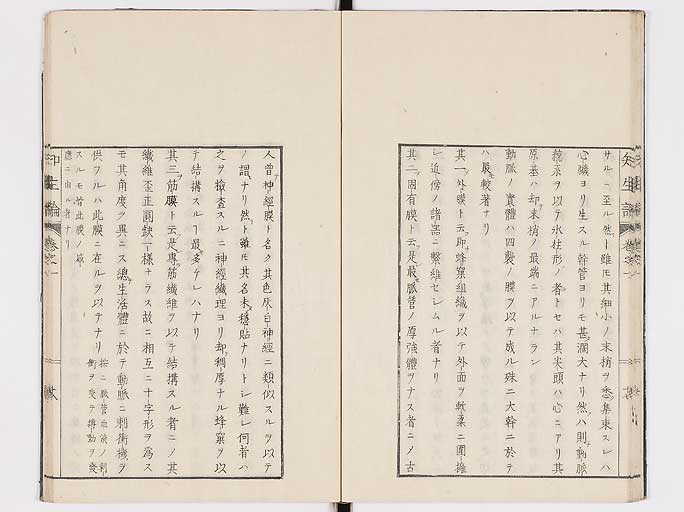 サルニ至ル然ト雖モ其細小ノ末梢ヲ悉ク集束スレハ
心臓ヨリ生スル幹管ヨリモ甚タ濶大ナリ然ハ則動脈
統系ヲ以テ氷柱形ノ者トセハ其尖頭ハ心ニアリ其
原基ハ却末梢ノ最端ニアルナラン
動脈ノ實體ハ四襲ノ膜ヲ以テ成ル殊ニ大幹ニ於テ
ハ最較著ナリ
其一外膜ト云即蜂窠組織ヲ以テ外面ヲ軟柔ニ圍擁
シ近傍ノ諸器ニ繋維セシムル者ナリ
其二固有膜ト云是最脈管ノ厚強體ヲナス者ニノ古
人曾神經膜ト名ク其色灰白神經ニ類似スルヲ以テ
ノ謂ナリ然ト雖モ其名未穩貼ナリトシ難シ何者ハ
之ヲ檢査スルニ神經纖理ヨリ却稠厚ナル蜂窠ヲ以
テ結搆スルヿ最多ケレハナリ
其三筋膜ト云是專筋纖維ヲ以テ結搆スル者ニノ其
纖維歪正圓缺一樣ナラス故ニ相互ニ十字形ヲ爲ス
モ其角度ヲ異ニス總生活體ニ於テ動脈ニ刺衝機ヲ
供フルハ此膜ニ在ルヲ以テナリ
按ニ脈管血液ノ刺
衝ヲ受テ搏動ヲ發
スルモ皆此膜ノ
應ニ由ル者ナリ